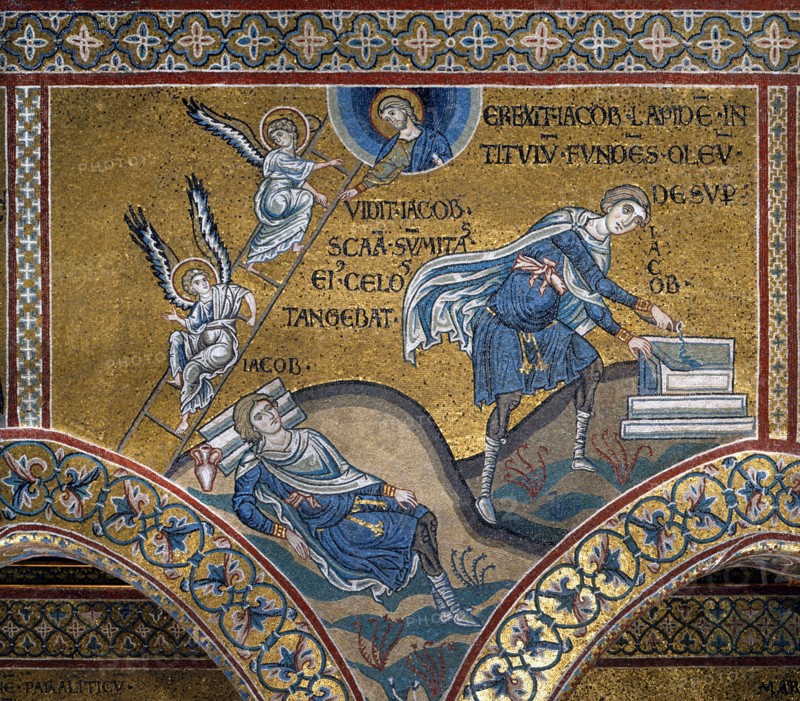 EREXIT·IACOB·LAPIDĒ·IN
TITVLV̄·FVNDĒS·OLEV̄·
DESVP̄
VIDIT·IACOB·
SCALĀ·SVMITAS
EIꝰ·CELOS
TANGEBAT·
IACOB·
IACOB·
NE·PARALITICV·
MAR
PHOTO12